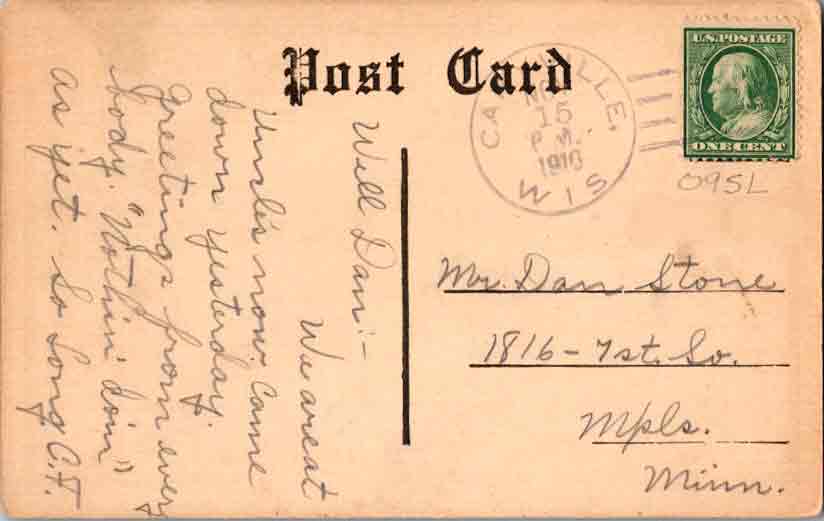 Post Card
WIS.
NOV
15
P M.
1910
U.S. POSTAGE
ONE CENT
095L
Well Dan:-
We are at
Uncle's now. Came
down yesterday.
Greetings from every
body. "Nothin' Doin"
as yet. So Long C.F.
Mr. Dan Stone
1816 - 7st. So.
Mpls.
Minn.